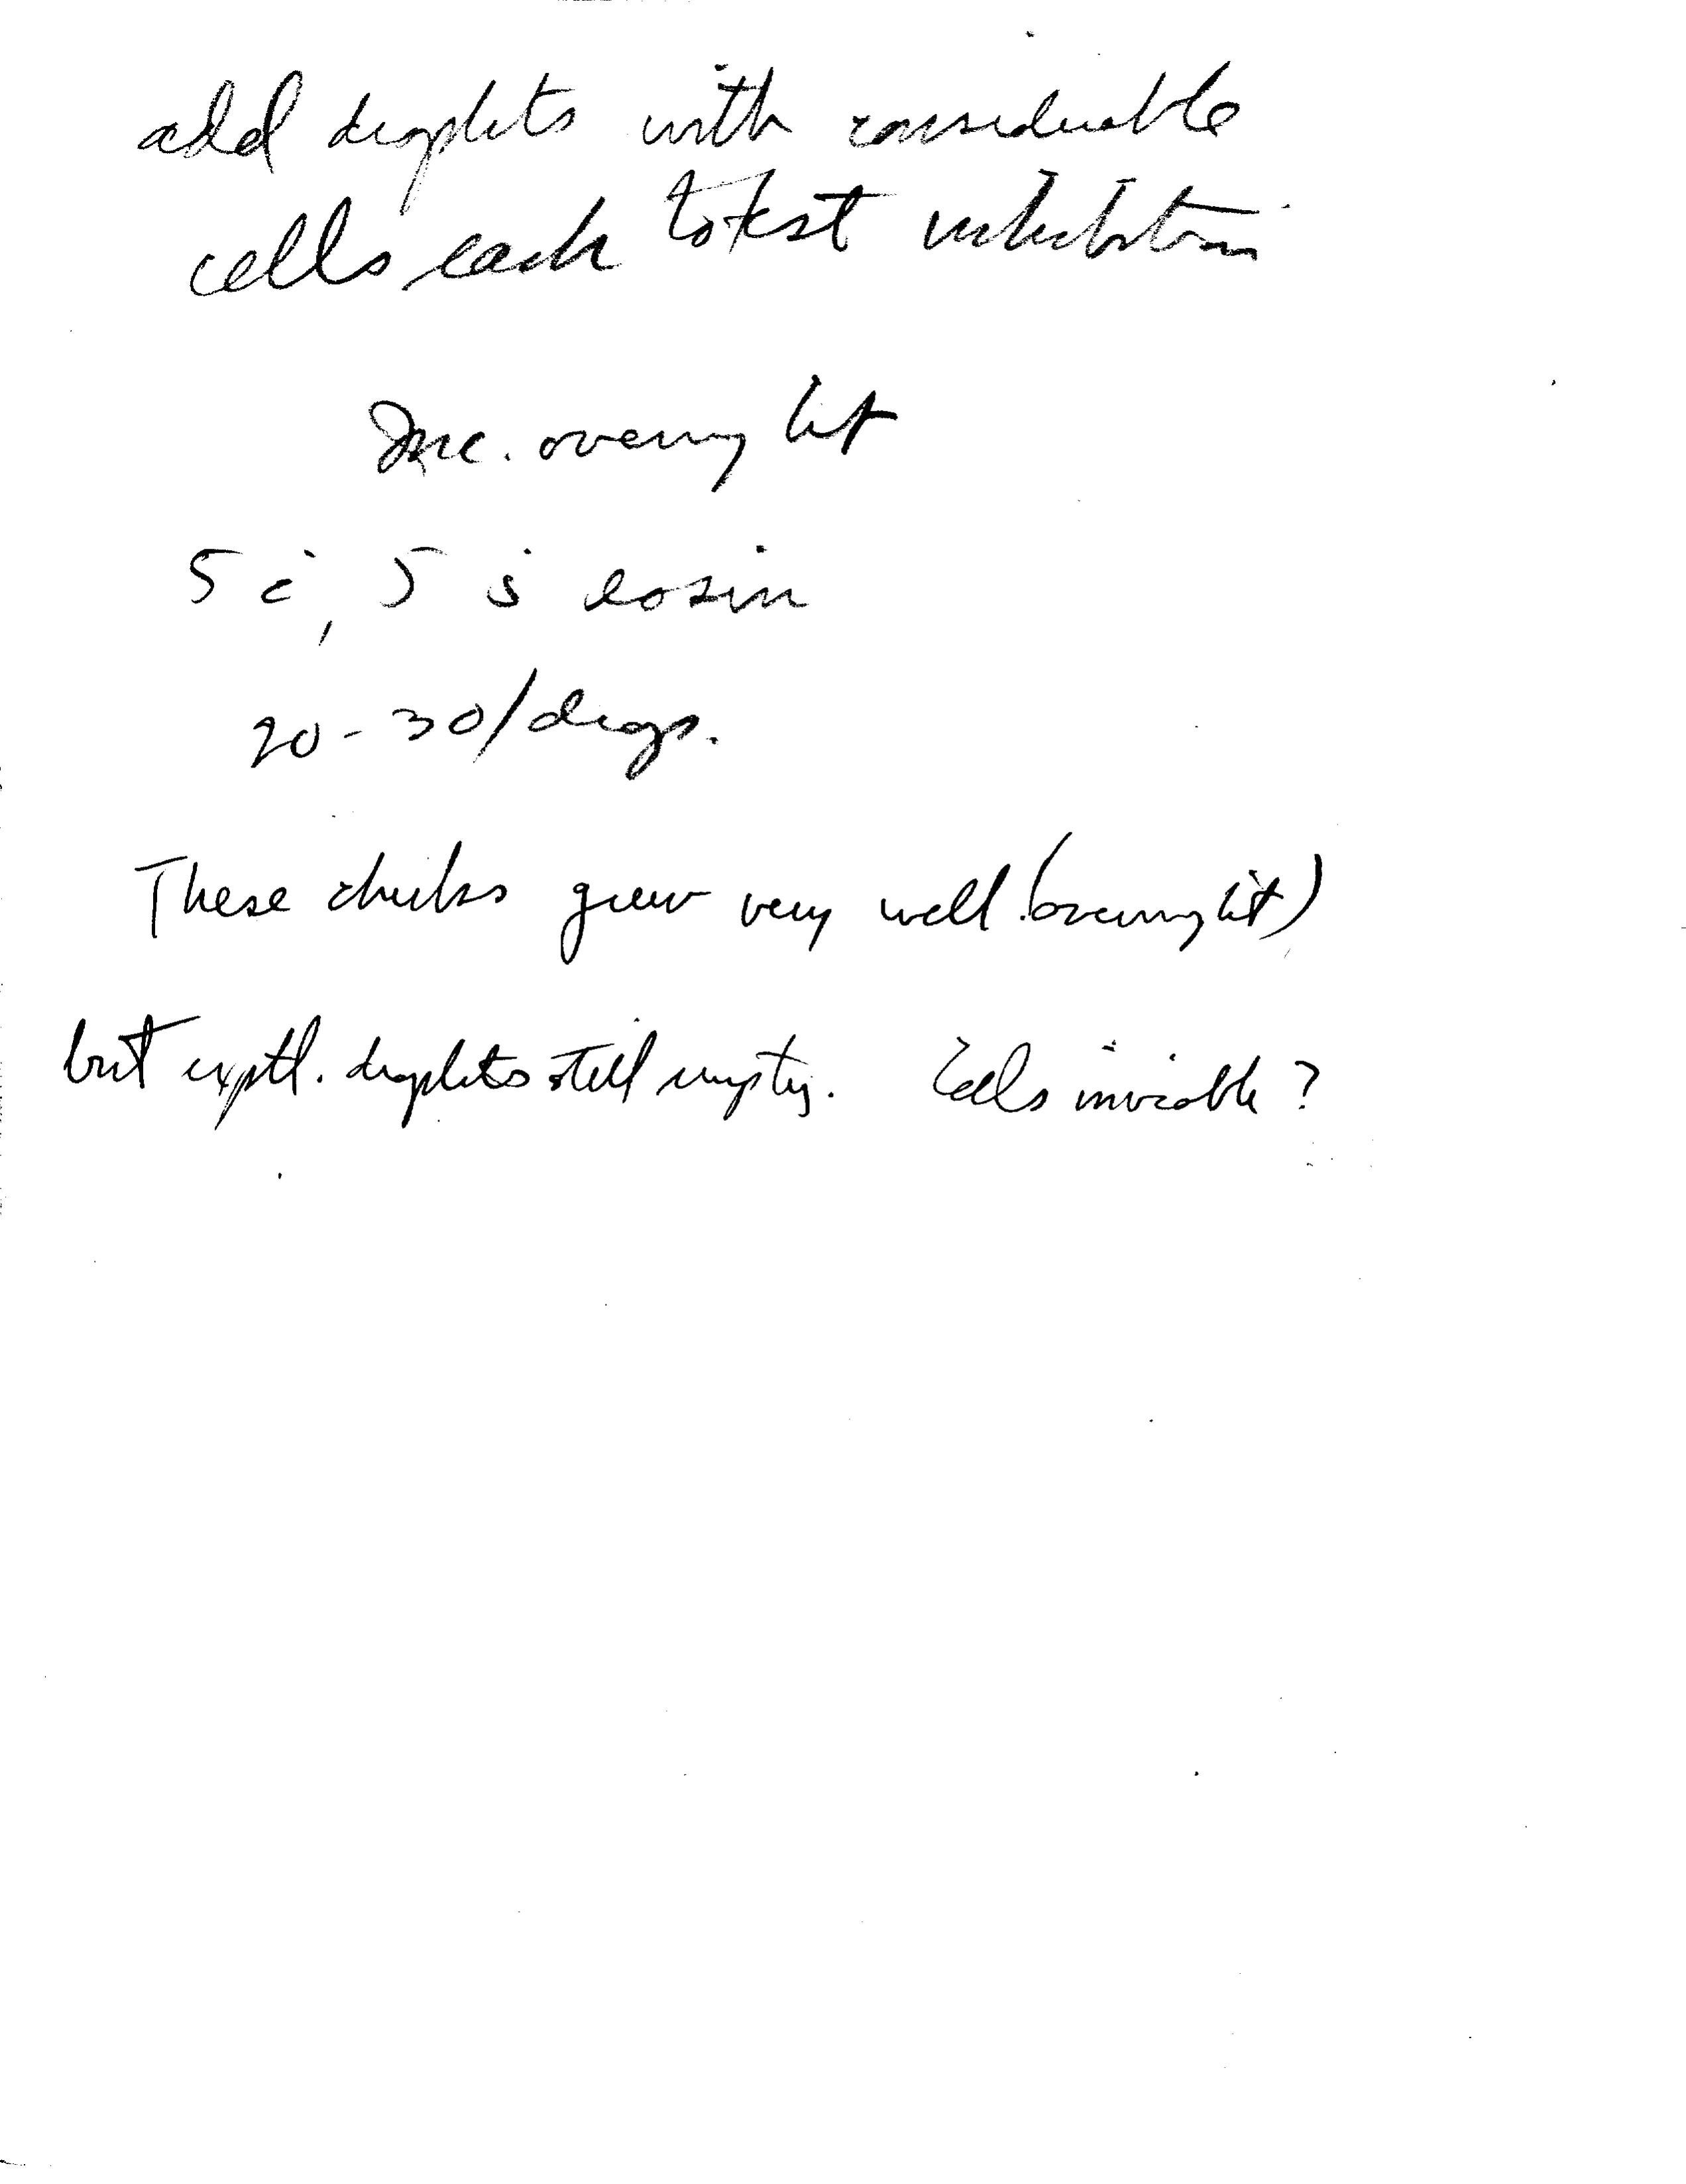 add droplets with considerable
cells each to test inhibition
Inc. overnight
5 c̄, 5 s̄ eosin
20-30/drop.
These checks grew very well. (overnight)
but exptl. droplets still empty. Cells inviable?